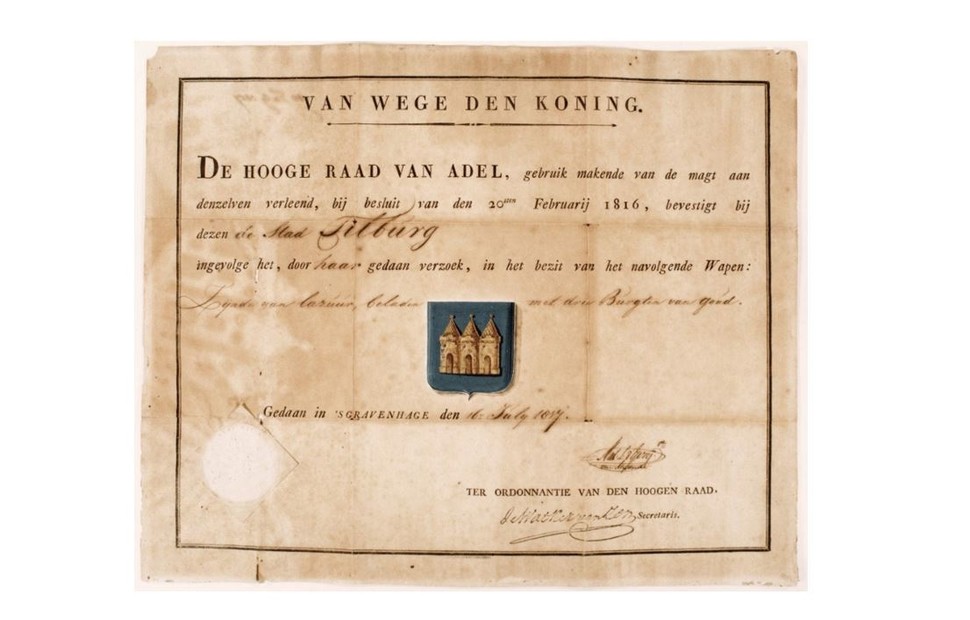 VAN WEGE DEN KONING.
DE HOOGE RAAD VAN ADEL, gebruik makende van de magt aan
denzelven verleend, bij besluit van den 20sten Februarij 1816, bevestigt bij
dezen de Stad Tilburg
ingevolge het, door haar gedaan verzoek, in het bezit van het navolgende Wapen:
Zynde van lazuur, beladen met drie Burgten van goud.
Gedaan in 'SGRAVENHAGE den 16 July 1817.
TER ORDONNANTIE VAN DEN HOOGEN RAAD.
Secretaris.